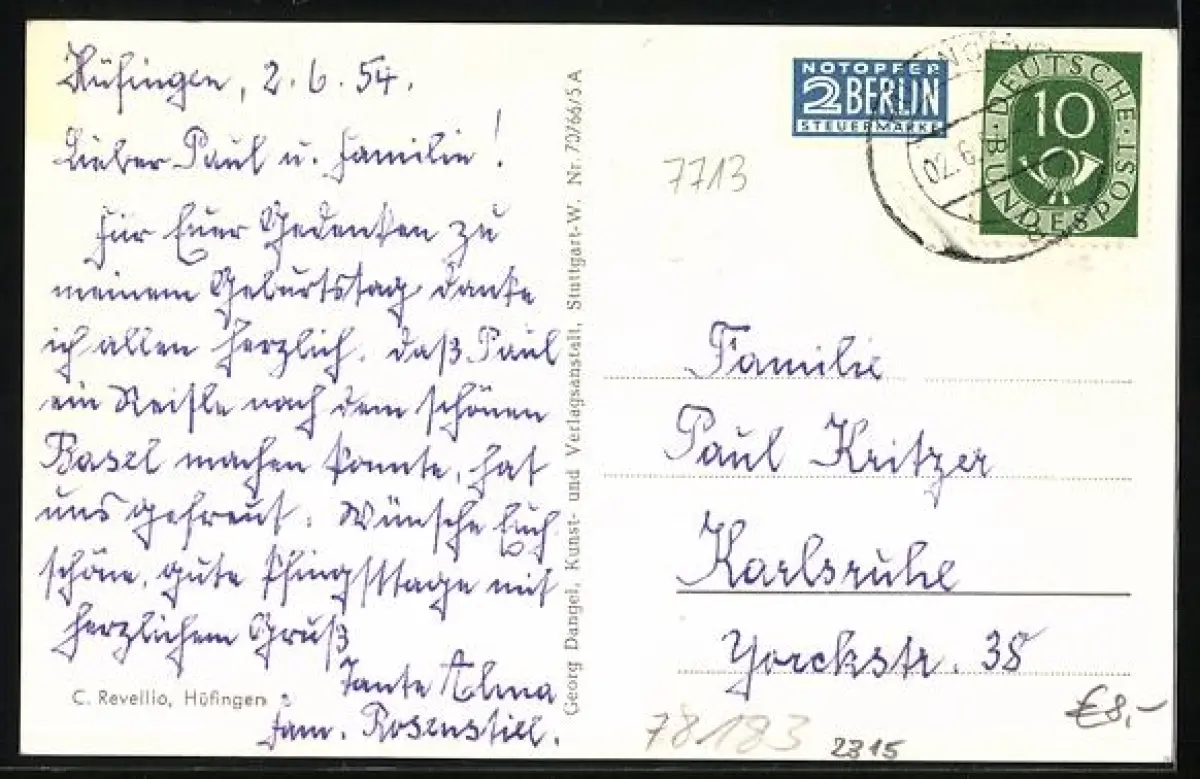 Hüfingen, 2.6.54.
Lieber Paul u. Familie!
Für Euer Gedenken zu
meinem Geburtstag danke
ich allen herzlich. Daß Paul
ein Reisle nach dem schönen
Basel machen konnte, hat
uns gefreut. Wünsche Euch
schöne, gute Pfingsttage mit
herzlichem Gruß
Tante Alma
Fam. Rosenstill.
C. Revellio, Hüfingen
Georg Dangel, Kunst- und Verlagsanstalt, Stuttgart-W. Nr. 70766/5A
NOTOPFER
2 BERLIN
STEUERMARKE
DEUTSCHE
10
BUNDESPOST
02.6.
7713
Familie
Paul Kritzer
Karlsruhe
Yorckstr. 38
€8,-
78183
2315